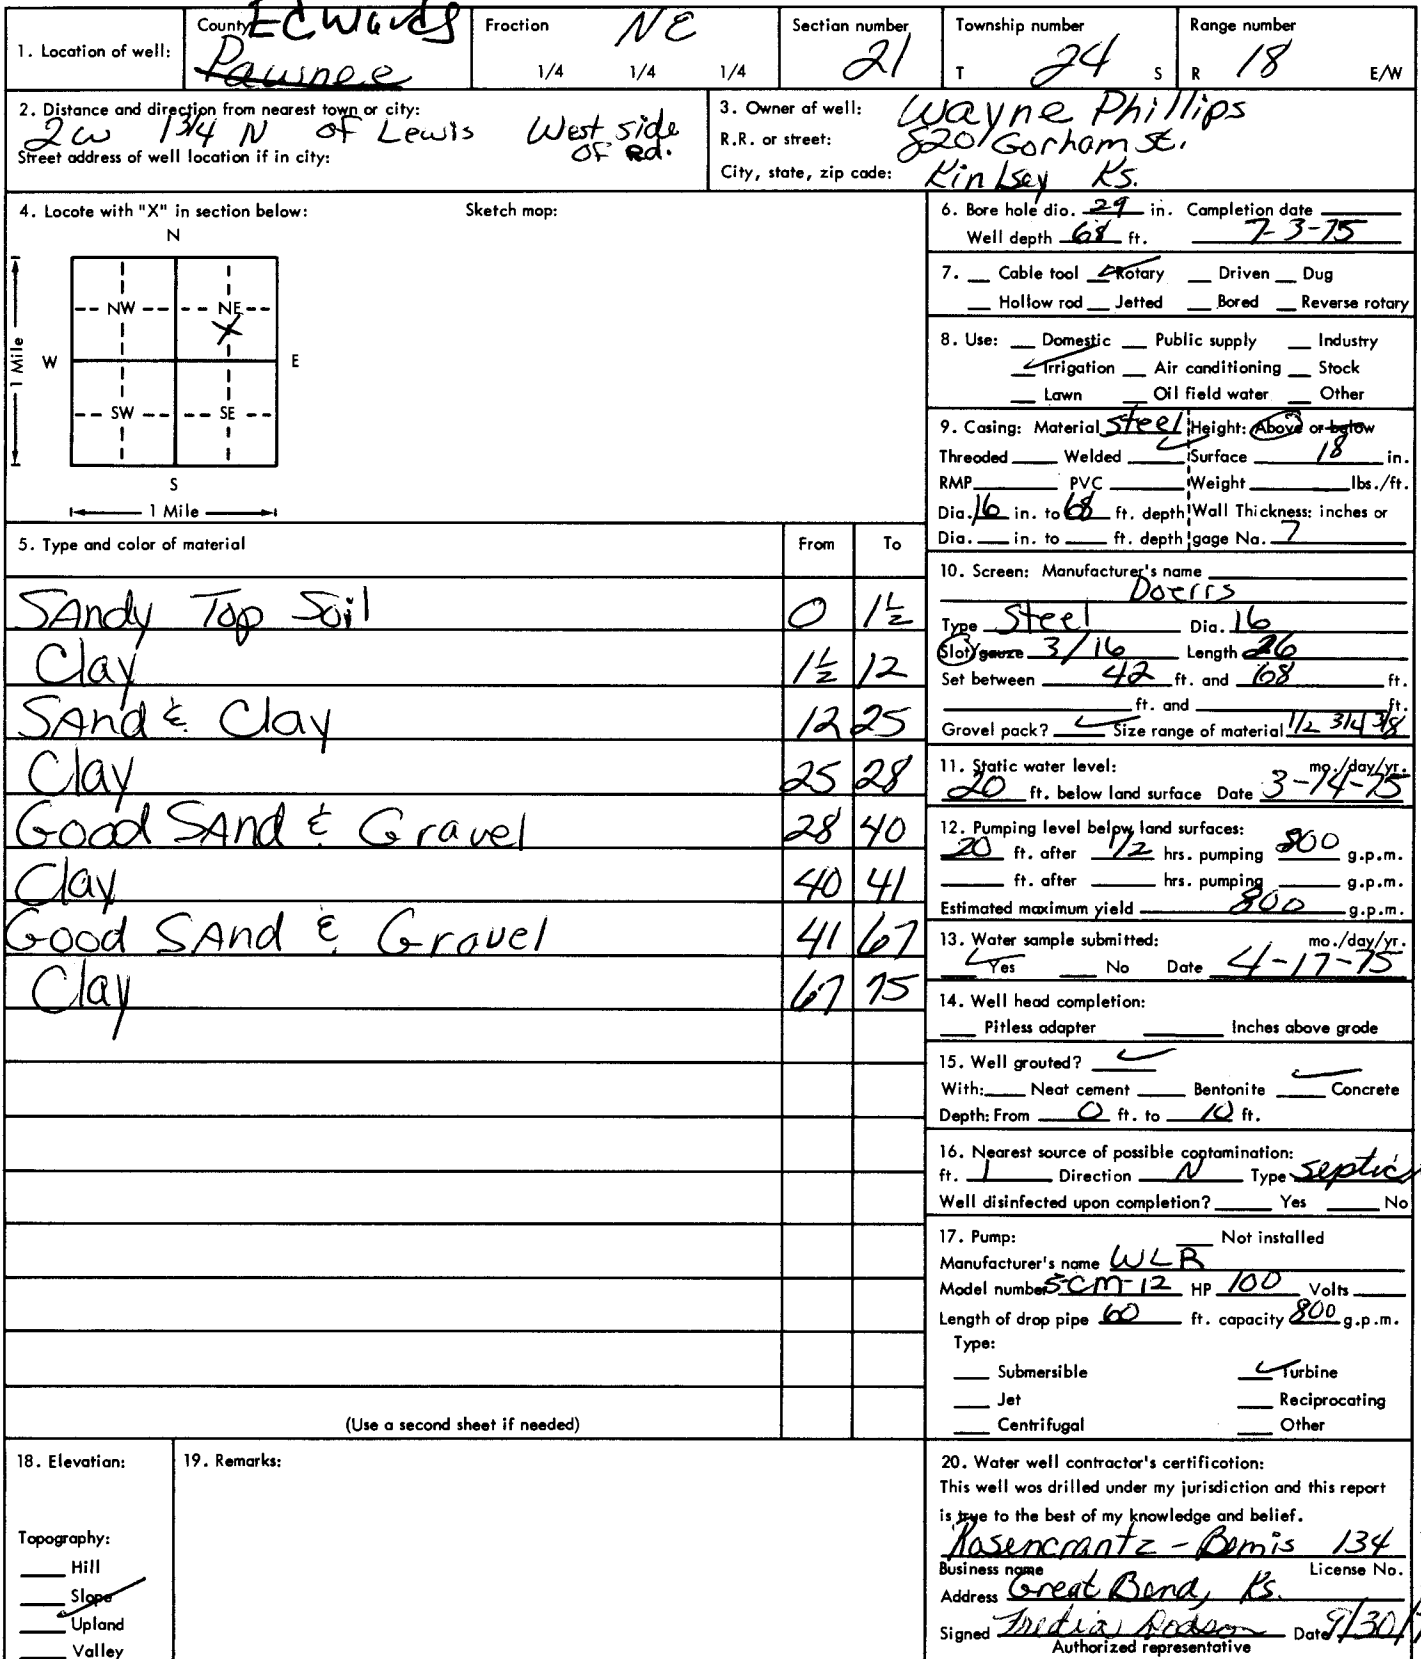 1. Location of well: County Edwards Pawnee Fraction NE 1/4 1/4 1/4 Section number 21 Township number T 24 S Range number R 18 E/W
2. Distance and direction from nearest town or city:
2w 1 3/4 N of Lewis West side of Rd.
Street address of well location if in city:
3. Owner of well: Wayne Phillips
R.R. or street: 820 Gorham St.
City, state, zip code: Kinlsey Ks.
4. Locate with "X" in section below: Sketch map:
N
NW NE
X
W E
1 Mile
SW SE
S
1 Mile
5. Type and color of material From To
SAndy Top Soil 0 1 1/2
Clay 1 1/2 12
SAnd & Clay 12 25
Clay 25 28
Good SAnd & Gravel 28 40
Clay 40 41
Good SAnd & Gravel 41 67
Clay 67 75
(Use a second sheet if needed)
6. Bore hole dia. 29 in. Completion date
Well depth 68 ft. 7-3-75
7. Cable tool ✓ Rotary Driven Dug
Hollow rod Jetted Bored Reverse rotary
8. Use: Domestic Public supply Industry
✓ Irrigation Air conditioning Stock
Lawn Oil field water Other
9. Casing: Material Steel Height: Above or below
Threaded Welded ✓ Surface 18 in.
RMP PVC Weight lbs./ft.
Dia. 16 in. to 68 ft. depth Wall Thickness: inches or
Dia. in. to ft. depth gage No. 7
10. Screen: Manufacturer's name
Doerrs
Type Steel Dia. 16
Slot/gauze 3/16 Length 26
Set between 42 ft. and 68 ft.
ft. and ft.
Gravel pack? ✓ Size range of material 1/2 3/4 3/8
11. Static water level: mo./day/yr.
20 ft. below land surface Date 3-14-75
12. Pumping level below land surfaces:
20 ft. after 1/2 hrs. pumping 800 g.p.m.
ft. after hrs. pumping g.p.m.
Estimated maximum yield 800 g.p.m.
13. Water sample submitted: mo./day/yr.
✓ Yes No Date 4-17-75
14. Well head completion:
Pitless adapter Inches above grade
15. Well grouted? ✓
With: Neat cement Bentonite ✓ Concrete
Depth: From 0 ft. to 10 ft.
16. Nearest source of possible contamination:
ft. 1 Direction N Type Septic
Well disinfected upon completion? Yes No
17. Pump: Not installed
Manufacturer's name WLR
Model number 5-CM-12 HP 100 Volts
Length of drop pipe 60 ft. capacity 800 g.p.m.
Type:
Submersible ✓ Turbine
Jet Reciprocating
Centrifugal Other
18. Elevation:
Topography:
Hill
Slope
✓ Upland
Valley
19. Remarks:
20. Water well contractor's certification:
This well was drilled under my jurisdiction and this report
is true to the best of my knowledge and belief.
Rosencrantz-Bemis 134
Business name License No.
Address Great Bend, Ks.
Signed Dodson Date 9/30/
Authorized representative